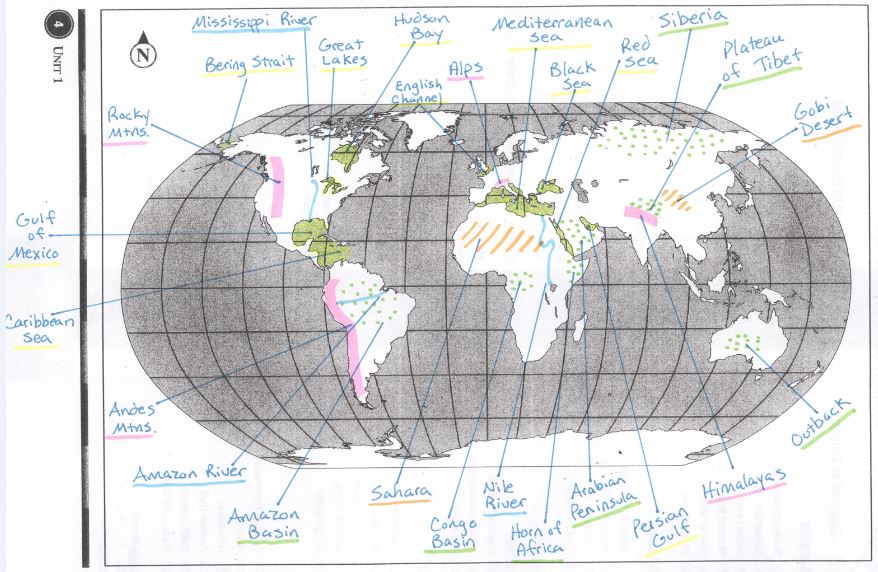 4
UNIT 1
N
Mississippi River
Hudson
Bay
Mediterranean
Sea
Siberia
Bering Strait
Great
Lakes
English
Channel
Alps
Black
Sea
Red
Sea
Plateau
of Tibet
Rocky
Mtns.
Gobi
Desert
Gulf
of
Mexico
Caribbean
Sea
Andes
Mtns.
Amazon River
Amazon
Basin
Sahara
Congo
Basin
Nile
River
Horn of
Africa
Arabian
Peninsula
Persian
Gulf
Himalayas
Outback